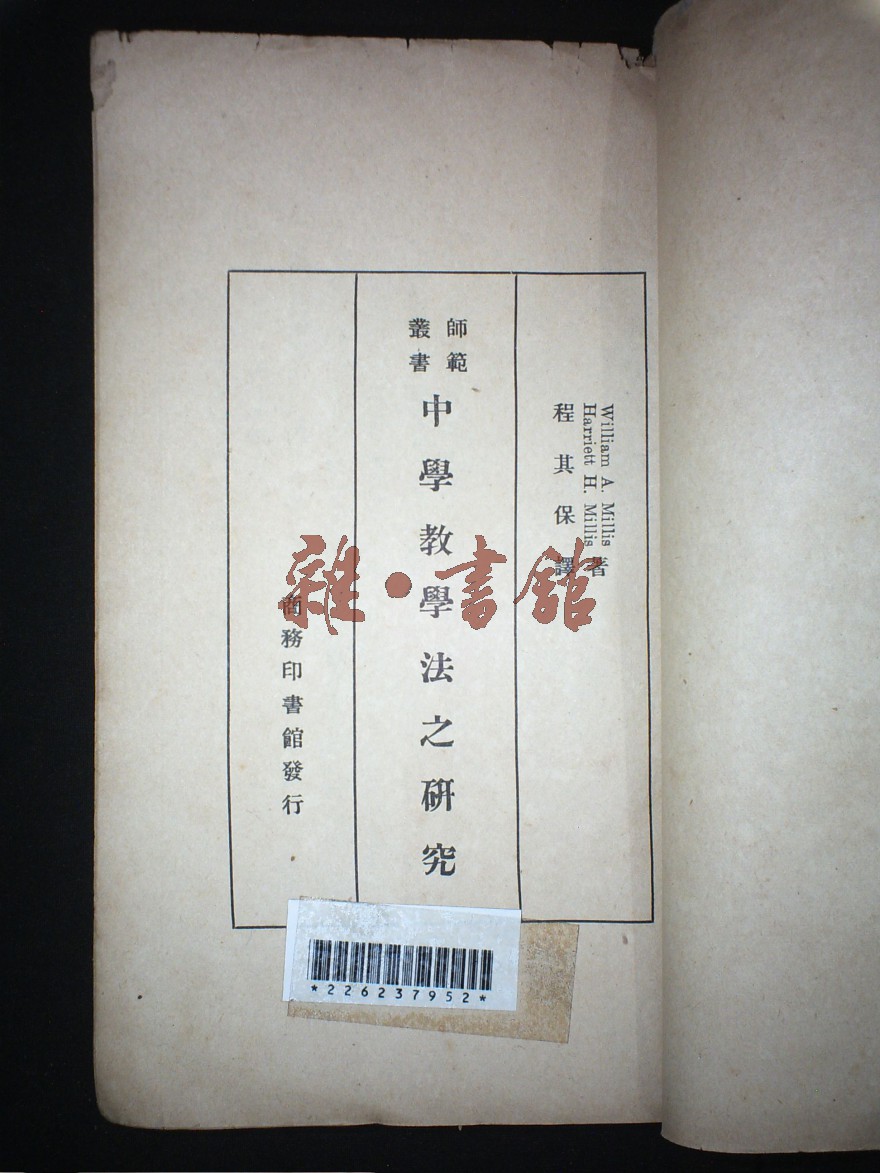 William A. Millis
Harriett H. Millis
著
程其保譯
師範
叢書
中學教學法之研究
商務印書館發行
雜·書館
*226237952*